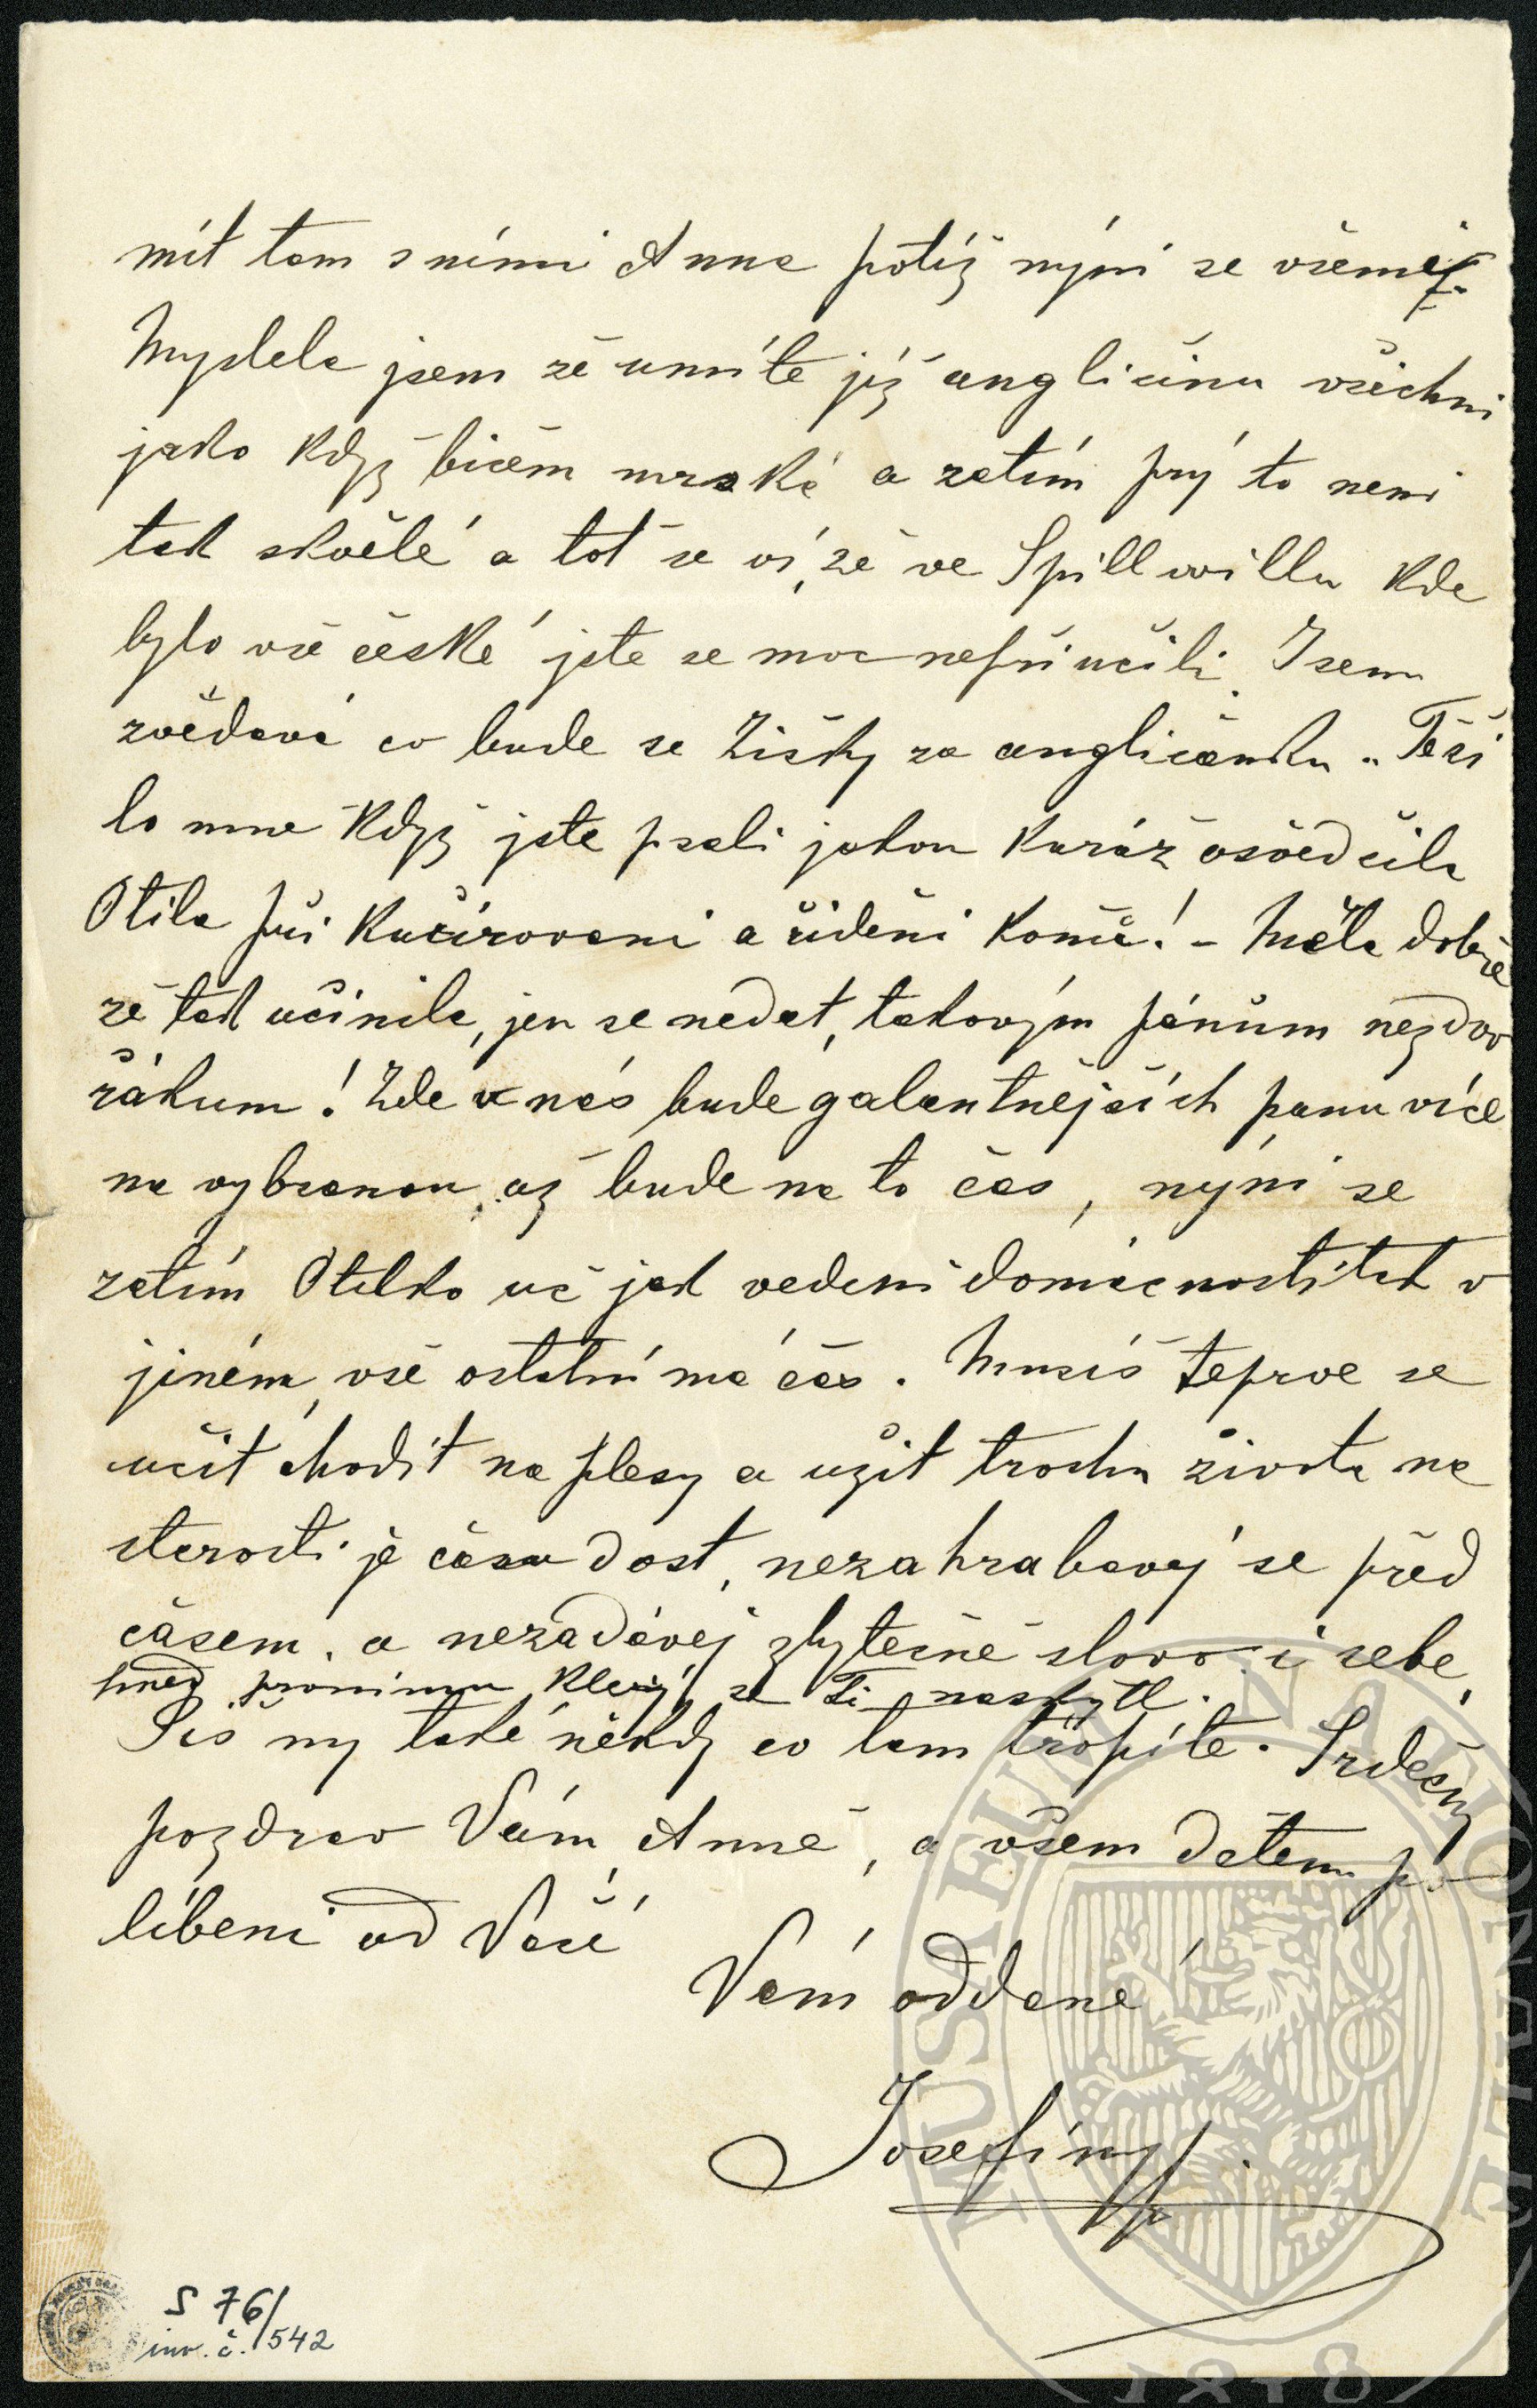 mít tam s ními Anna potíž nýni se všemi.
Myslela jsem že umíte již angličinu všichni
jako když bičem mrská a zatím prý to neni
tak skvělé a toť se ví, že ve Spillwillu kde
bylo vše české jste se moc nepřiučili. Jsem
zvědavá co bude se Zišky za angličanku. Těši
lo mne když jste psali jakou kuráž osvědčila
Otila při kučírovani a řideni koně! - Měla dobře
že tak učinila, jen se nedat, takovým pánům nezdvo
řákum! Zde u nás bude galantnějších panu více
na vybranou, až bude na to čas, nýni se
zatím Otilko uč jak vedeni domácnosti tak v
jiném, vše ostatní má čas. Musíš teprve se
učit chodit na plesy a užit trochu života na
starosti je času dost, nezahrabavej se před
časem. a nezadávej zbytečně slovo i sebe,
hned prvnimu který se Ti naskytl.
Piš my také někdy co tam tropíte. Srdečný
pozdrav Vám, Anně, a všem dětem po
líbeni od Vaší
Vám oddané
Josefíny
S 76/
inv. č. 1542
MUSAEUM NATIONALE
1818